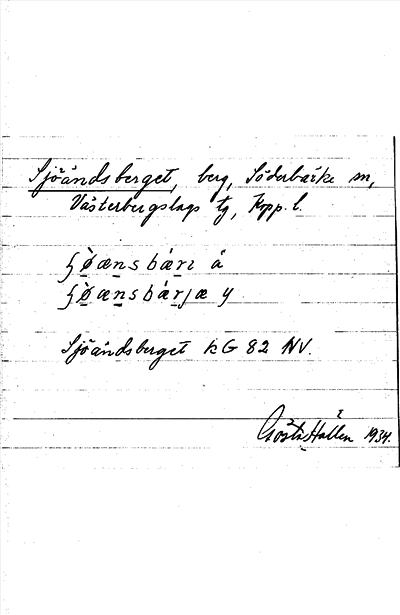 Sjöändsberget, berg, Söderbärke sn,
Västerbergslags tg, Kopp. l.
ʃø̀ænsbæ̀rı å
ʃø̀ænsbàrjæ y
Sjöändsberget kG 82 NV.
Gösta Hallén 1934.